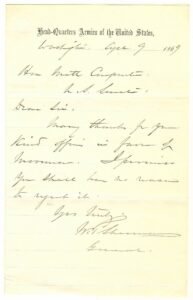 Head-Quarters Armies of the United States,
Washington, Sept 9 1869
Hon Matt Carpenter
U.S. Senate
Dear Sir.
Many thanks for your
Kind offices in favor of
I promise
You shall have no reason
to regret it.
Yrs truly
W.T. Sherman
General